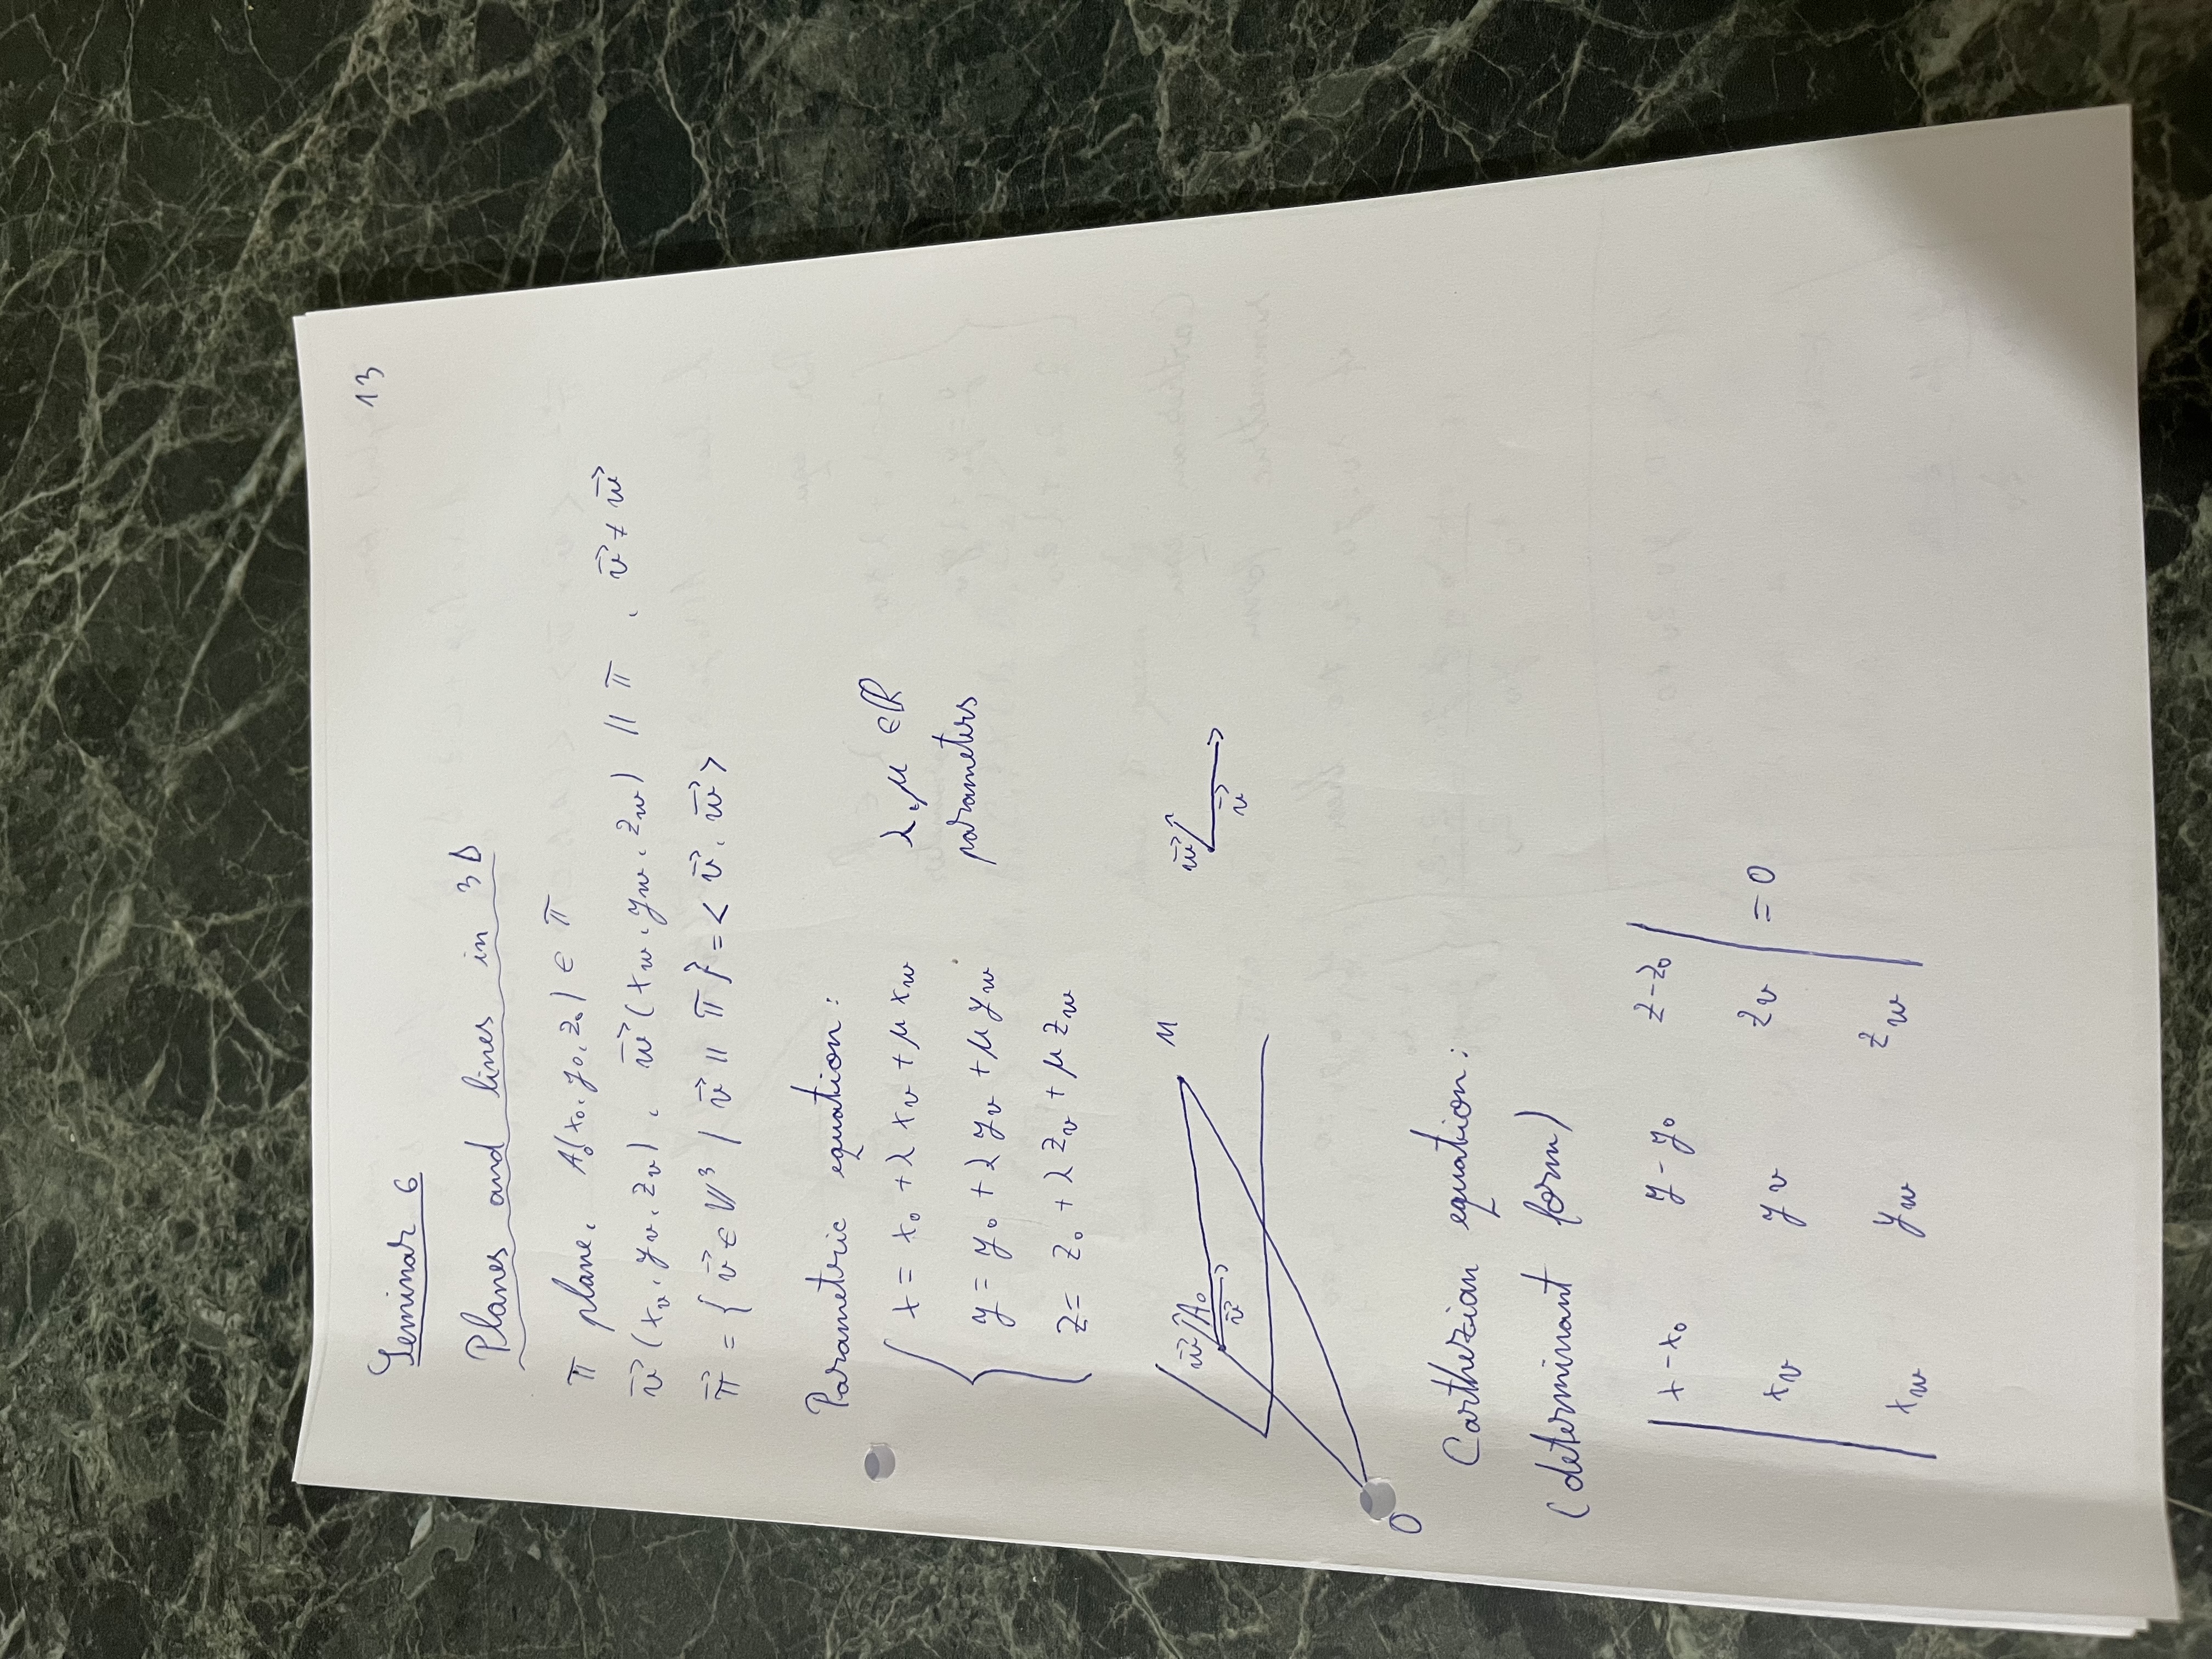 13
Seminar 6
Planes and lines in 3D
π plane, A₀(x₀, y₀, z₀) ∈ π
v⃗ (x_v, y_v, z_v), w⃗ (x_w, y_w, z_w) ∥ π, v⃗ ≠ w⃗
π⃗ = { v⃗ ∈ V³ / v⃗ ∥ π } = < v⃗, w⃗ >
Parametric equation:
x = x₀ + λ x_v + μ x_w λ, μ ∈ ℝ
y = y₀ + λ y_v + μ y_w parameters
z = z₀ + λ z_v + μ z_w
w⃗ A₀ v⃗ M w⃗ v⃗
O
Carthezian equation:
(determinant form)
| x - x₀ y - y₀ z - z₀ |
| x_v y_v z_v | = 0
| x_w y_w z_w |